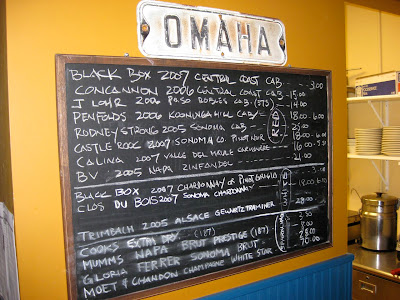 OMAHA
BLACK BOX 2007 CENTRAL COAST CAB — 3.00
CONCANNON 2006 CENTRAL COAST CAB — 15.00
J LOHR 2006 PASO ROBLES CAB (375) — 14.00
PENFOLDS 2006 KOONUNGA HILL CAB — 18.00 - 6.00
RODNEY STRONG 2005 SONOMA CAB — 25.00
CASTLE ROCK 2007 SONOMA CO. PINOT NOIR — 18.00 - 6.00
CALINA 2007 VALLE DEL MAULE CARMENERE — 16.00
BV 2005 NAPA ZINFANDEL — 21.00
RED
BLACK BOX 2007 CHARDONNAY OR PINOT GRIGIO — 3.00
CLOS DU BOIS 2007 SONOMA CHARDONNAY
TRIMBACH 2005 ALSACE GEWURTZTRAMINER — 28.00
WHITE
COOKS EXTRA DRY (187)
MUMMS NAPA BRUT PRESTIGE (187)
GLORIA FERRER SONOMA BRUT
MOET & CHANDON CHAMPAGNE WHITE STAR — 70.00
SPARKLING